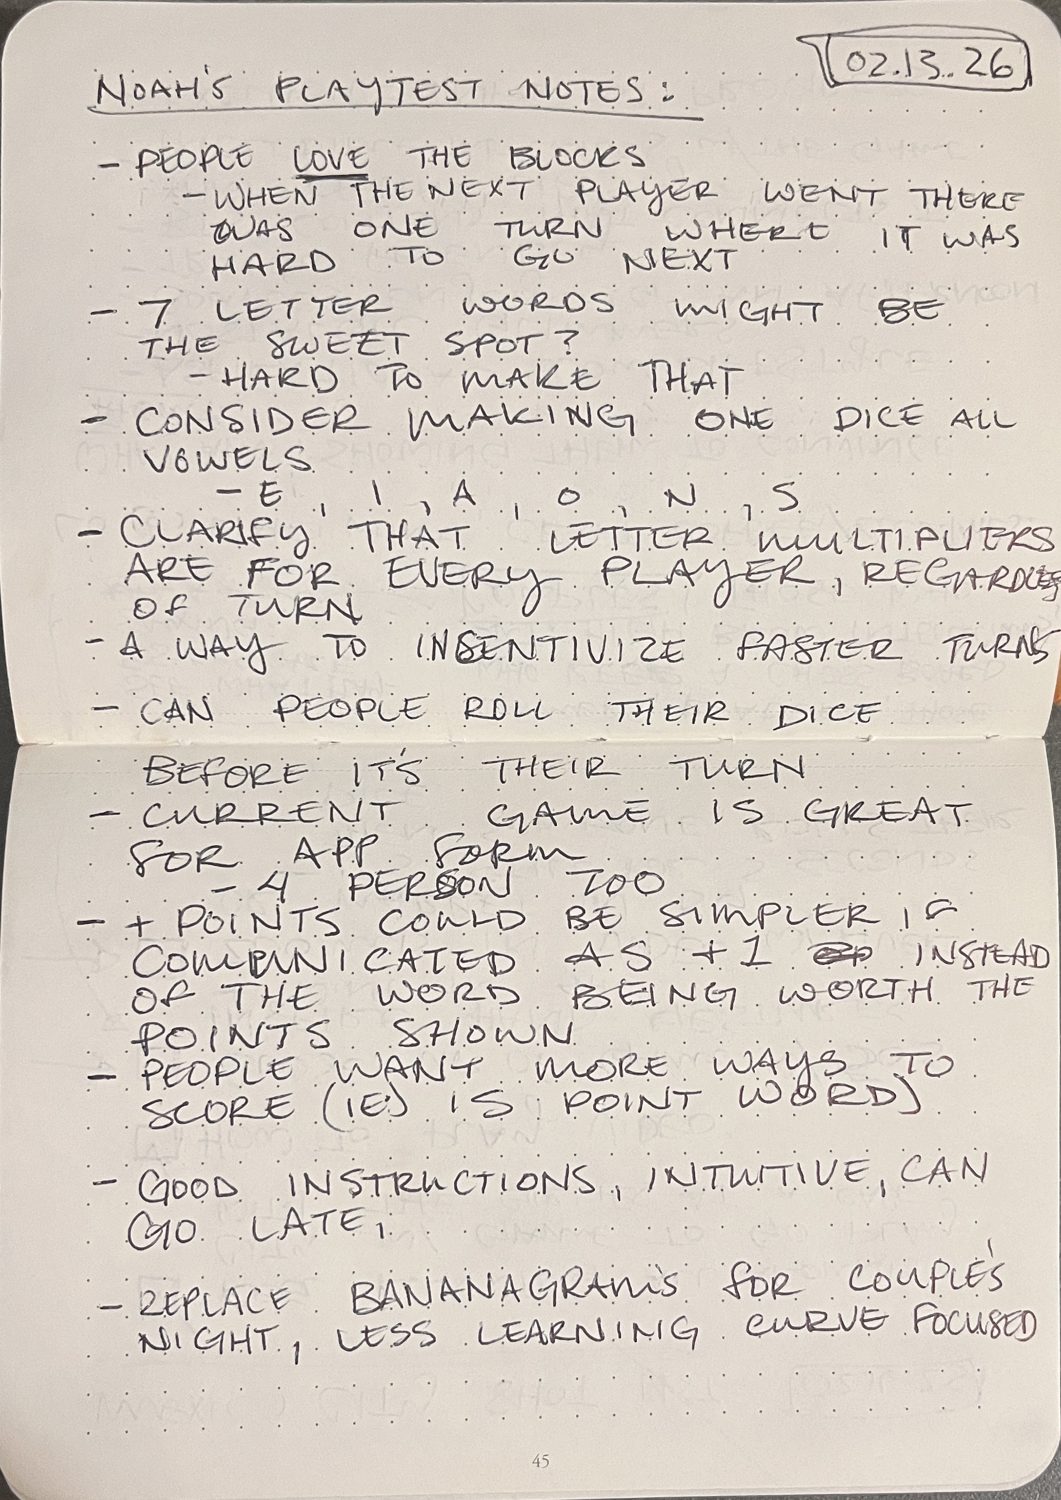 02.13.26
NOAH'S PLAYTEST NOTES:
- PEOPLE LOVE THE BLOCKS
- WHEN THE NEXT PLAYER WENT THERE
WAS ONE TURN WHERE IT WAS
HARD TO GO NEXT
- 7 LETTER WORDS MIGHT BE
THE SWEET SPOT?
- HARD TO MAKE THAT
- CONSIDER MAKING ONE DICE ALL
VOWELS
- E, I, A, O, N, S
- CLARIFY THAT LETTER MULTIPLIERS
ARE FOR EVERY PLAYER, REGARDLESS
OF TURN
- A WAY TO INSENTIVIZE FASTER TURNS
- CAN PEOPLE ROLL THEIR DICE
BEFORE IT'S THEIR TURN
- CURRENT GAME IS GREAT
FOR APP FORM
- 4 PERSON TOO
- + POINTS COULD BE SIMPLER IF
COMMUNICATED AS +1 INSTEAD
OF THE WORD BEING WORTH THE
POINTS SHOWN
- PEOPLE WANT MORE WAYS TO
SCORE (IE) IS POINT WORD)
- GOOD INSTRUCTIONS, INTUITIVE, CAN
GO LATE,
- REPLACE BANANAGRAM'S FOR COUPLE'S
NIGHT, LESS LEARNING CURVE FOCUSED
45